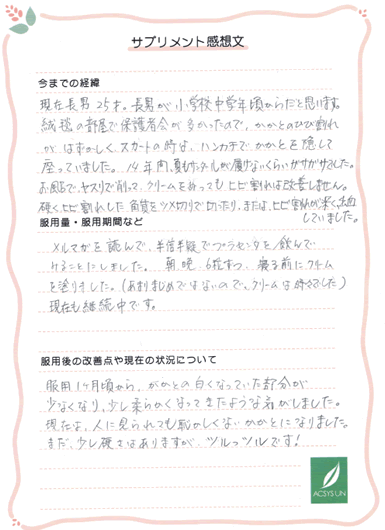 サプリメント感想文
今までの経緯
現在長男25才。長男が小学校中学年頃からだと思います。
絨毯の部屋で保護者会が多かったので、かかとのひび割れ
がはずかしく、スカートの時は、ハンカチでかかとを隠して
座っていました。14年間、夏もサンダルが履けないくらいガサガサでした。
お風呂で、ヤスリで削って、クリームをぬってもヒビ割れは改善しません。
硬くヒビ割れした角質をツメ切りで切ったり、または、ヒビ割れが
していました。
服用量・服用期間など
メルマガを読んで、半信半疑でプラセンタを飲んで
みることにしました。朝晩6粒ずつ、寝る前にクリーム
を塗りました。(あまりまじめではないので、クリームは時々でした)
現在も継続中です。
服用後の改善点や現在の状況について
服用1ヶ月頃から、かかとの白くなっていた部分が
少なくなり、少し柔らかくなってきたような気がしました。
現在は、人に見られても恥かしくないかかとになりました。
まだ、少し硬さはありますが、ツルッツルです!
ACSYSUN